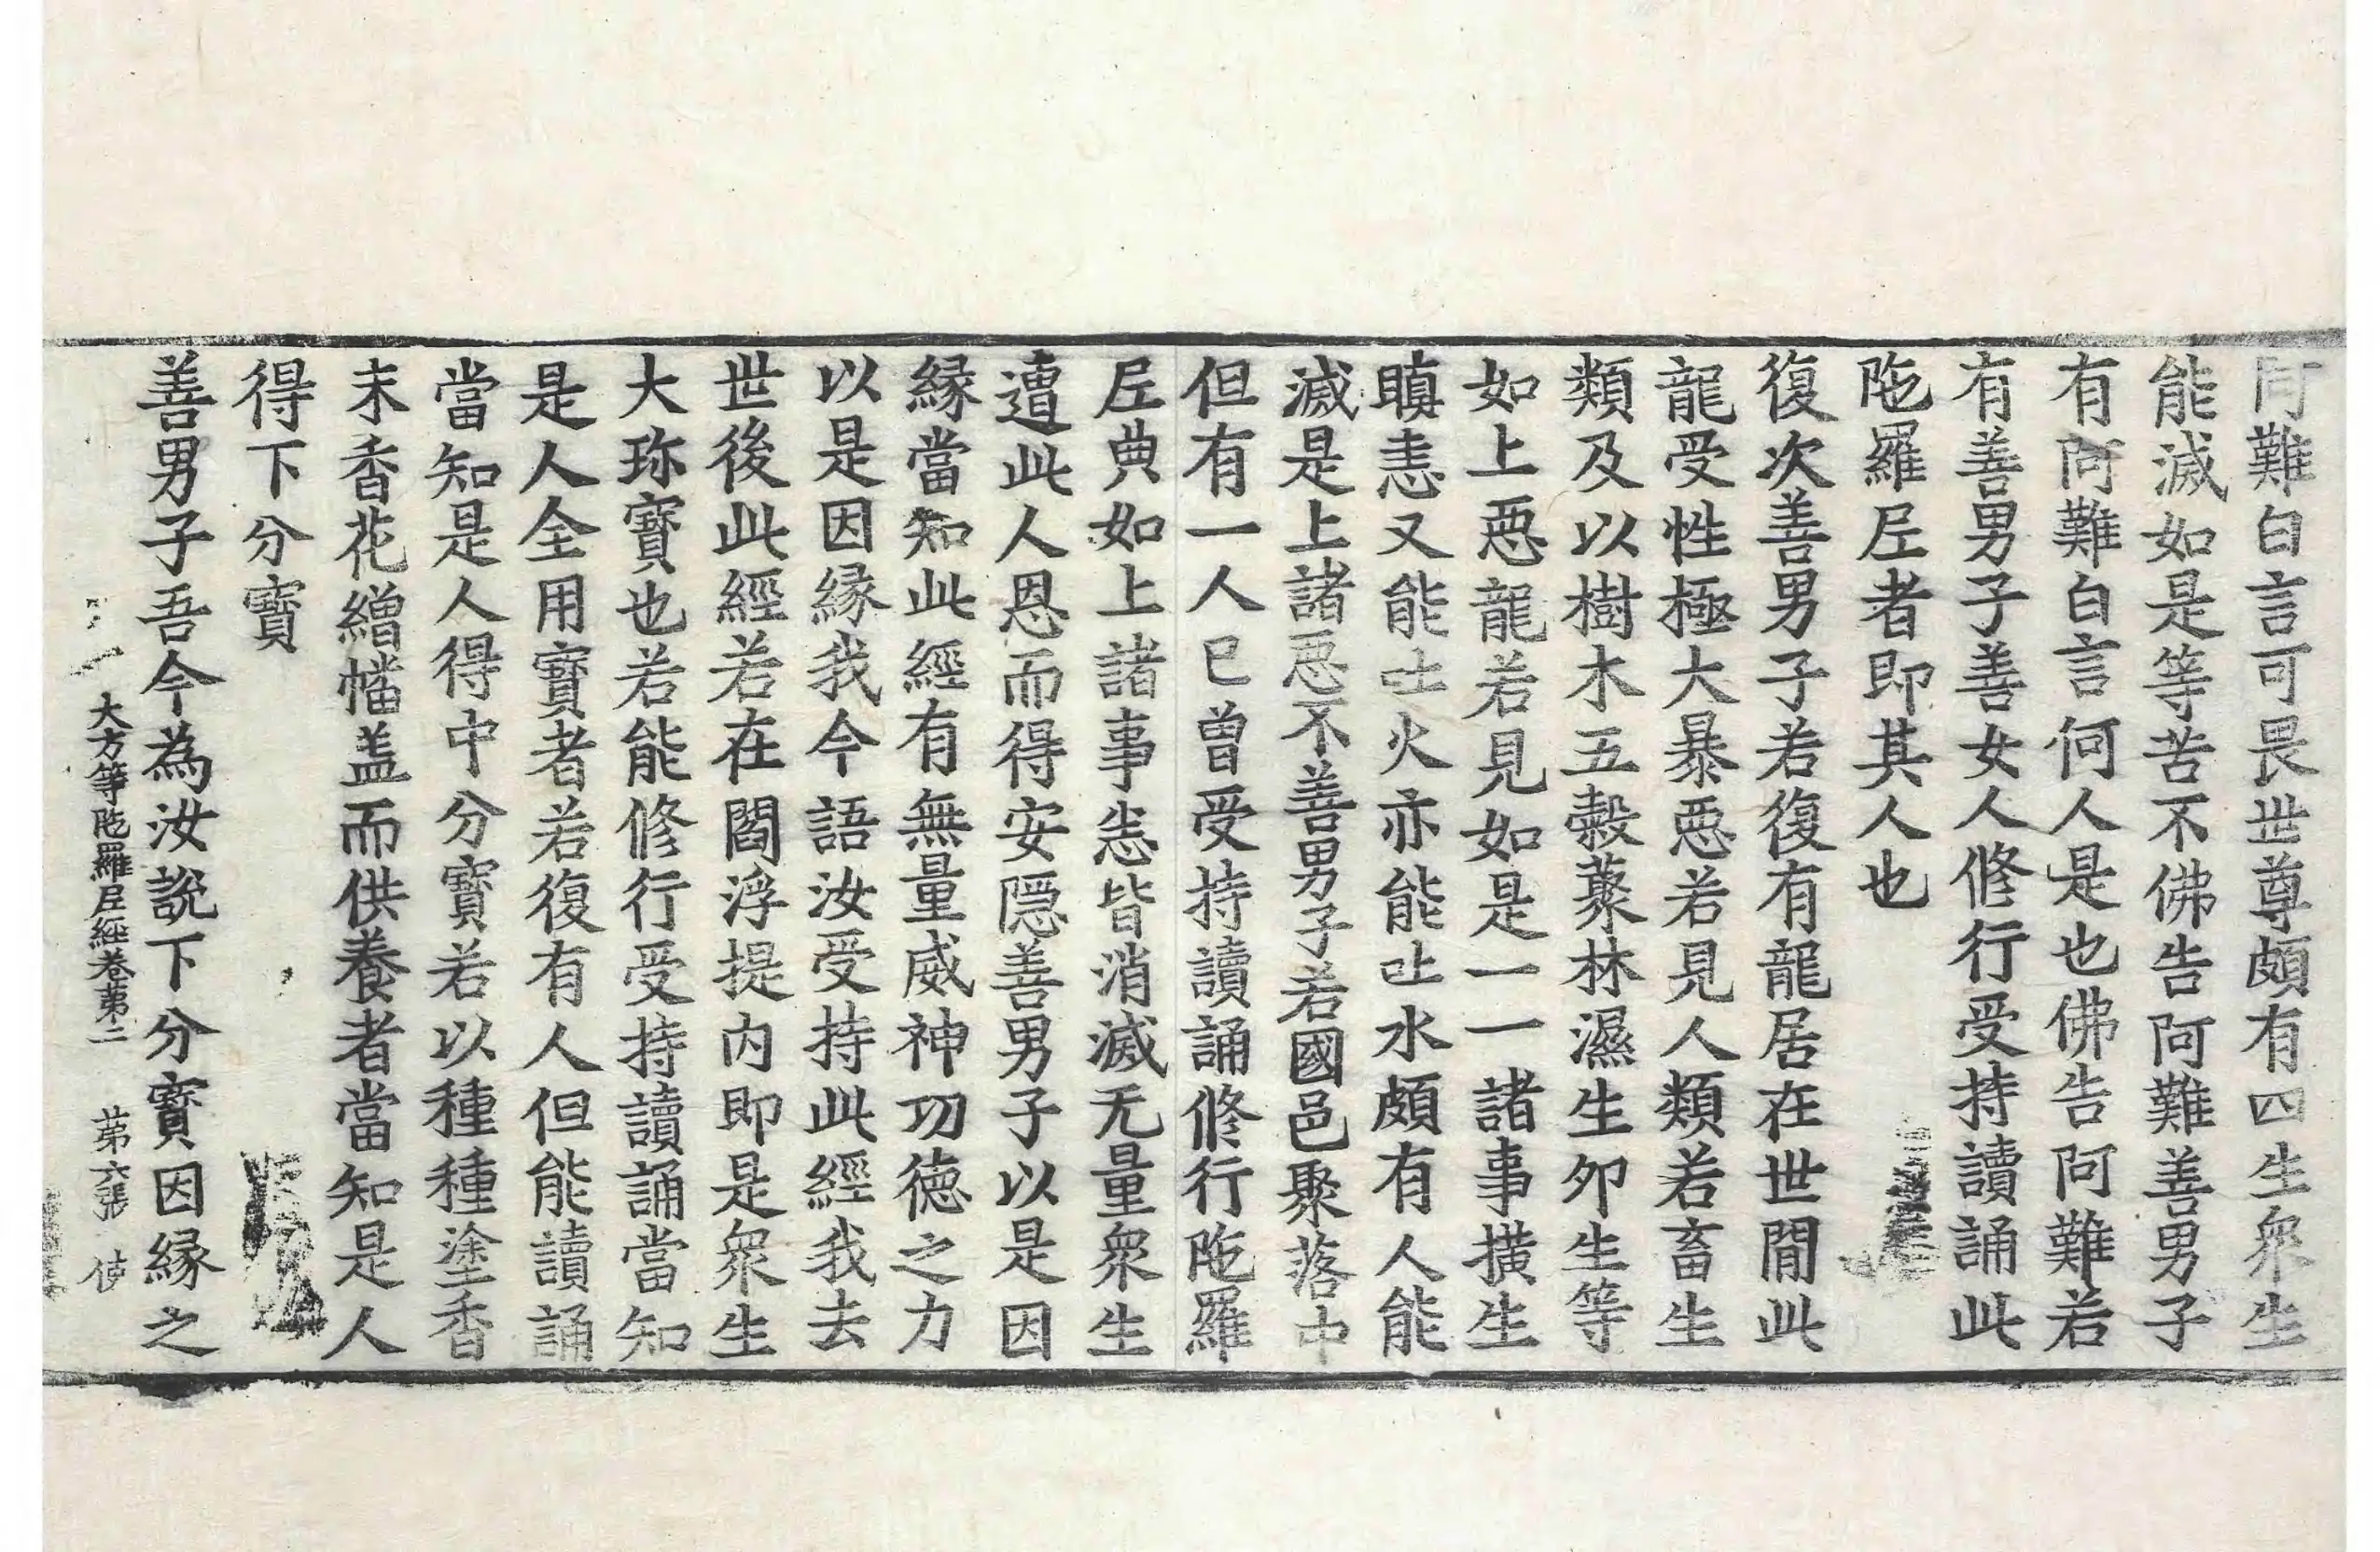 阿難白言可畏世尊頗有四生衆生
能滅如是等苦不佛告阿難善男子
有阿難白言何人是也佛告阿難若
有善男子善女人修行受持讀誦此
陁羅𡰱者即其人也
復次善男子若復有龍居在世間此
龍受性極大暴惡若見人類若畜生
類及以樹木五穀藂林濕生夘生等
如上惡龍若見如是一一諸事撗生
瞋恚又能吐火亦能吐水頗有人能
滅是上諸惡不善男子若國邑聚落中
但有一人已曾受持讀誦修行陁羅
𡰱典如上諸事悉皆消滅无量衆生
遭此人恩而得安隠善男子以是因
縁當知此經有無量威神功徳之力
以是因縁我今語汝受持此經我去
世後此經若在閻浮提内即是衆生
大珎寶也若能修行受持讀誦當知
是人全用寶者若復有人但能讀誦
當知是人得中分寶若以種種塗香
末香花繒幡盖而供養者當知是人
得下分寶
善男子吾今為汝說下分寶因縁之
大方等陁羅𡰱經卷第二 苐六張 使